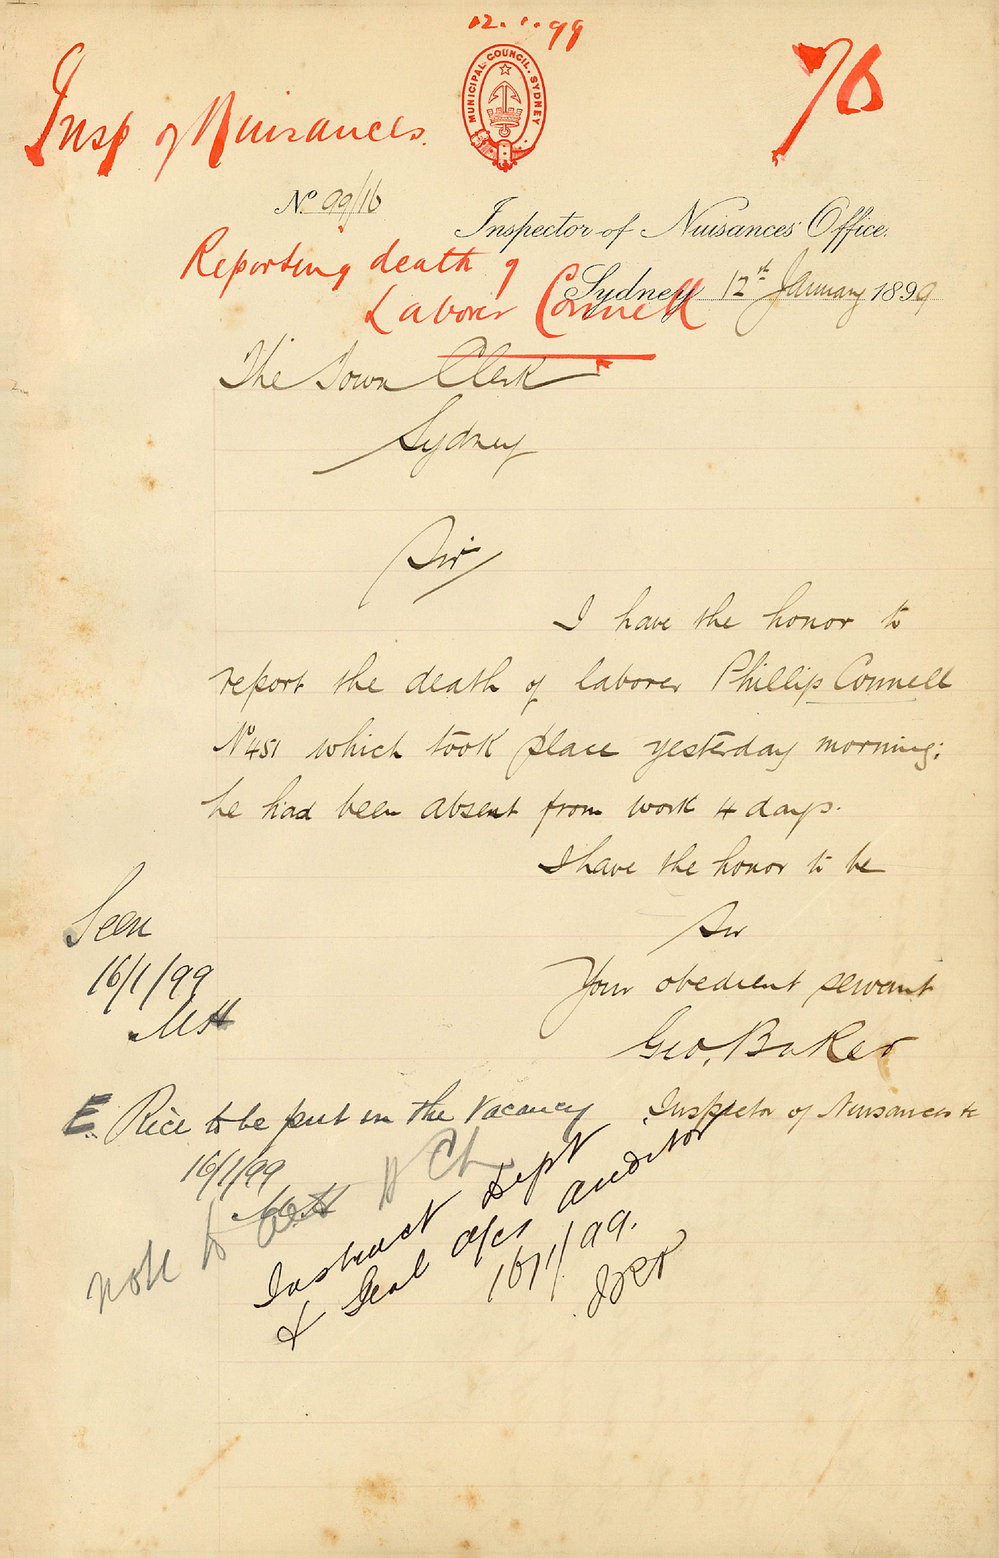 12.1.99
76
MUNICIPAL COUNCIL. SYDNEY
Insp of Nuisances.
No. 99/16
Inspector of Nuisances' Office.
Reporting death of
Laborer Connell
Sydney 12th January 1899
The Town Clerk
Sydney
Sir
I have the honor to
report the death of laborer Phillip Connell
No 451 which took place yesterday morning;
he had been absent from work 4 days.
I have the honor to be
Sir
Your obedient servant
Geo. Baker
Inspector of Nuisances &c
Seen
16/1/99
E. Rice to be put in the vacancy
16/1/99
Note to
Instruct Dept
& Genl a/cs auditor
16/1/99.